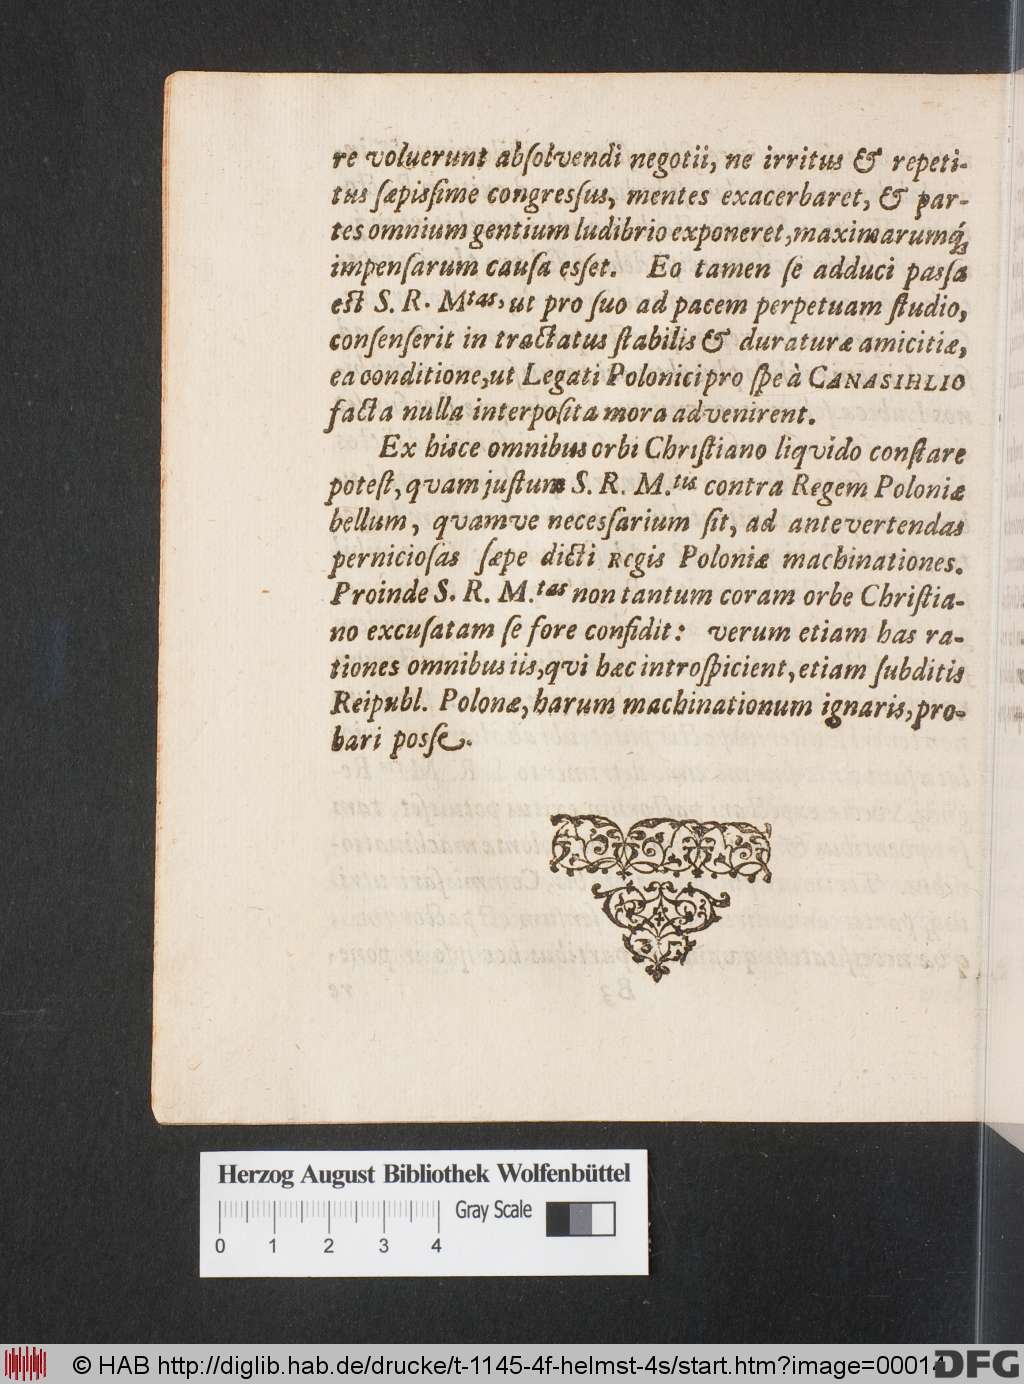 re voluerunt abſolvendi negotii, ne irritus & repeti-
tus ſæpiſſime congreſſus, mentes exacerbaret, & par-
tes omnium gentium ludibrio exponeret, maximarumq́;
impenſarum cauſa eſſet. Eo tamen ſe adduci paſſa
eſt S. R. Mtas, ut pro ſuo ad pacem perpetuam ſtudio,
conſenſerit in tractatus ſtabilis & duraturæ amicitiæ,
ea conditione, ut Legati Polonici pro ſpe à CANASIHLIO
facta nulla interpoſita mora advenirent.
Ex hisce omnibus orbi Chriſtiano liqvido conſtare
poteſt, qvam juſtum S. R. M.tis contra Regem Poloniæ
bellum, qvamve neceſſarium ſit, ad antevertendas
pernicioſas ſæpe dicti Regis Poloniæ machinationes.
Proinde S. R. M.tas non tantum coram orbe Chriſtia-
no excuſatam ſe fore confidit: verum etiam has ra-
tiones omnibus iis, qvi hæc introſpicient, etiam ſubditis
Reipubl. Polonæ, harum machinationum ignaris, pro-
bari poſſe.
Herzog August Bibliothek Wolfenbüttel
Gray Scale
0 1 2 3 4
© HAB http://diglib.hab.de/drucke/t-1145-4f-helmst-4s/start.htm?image=00014
DFG